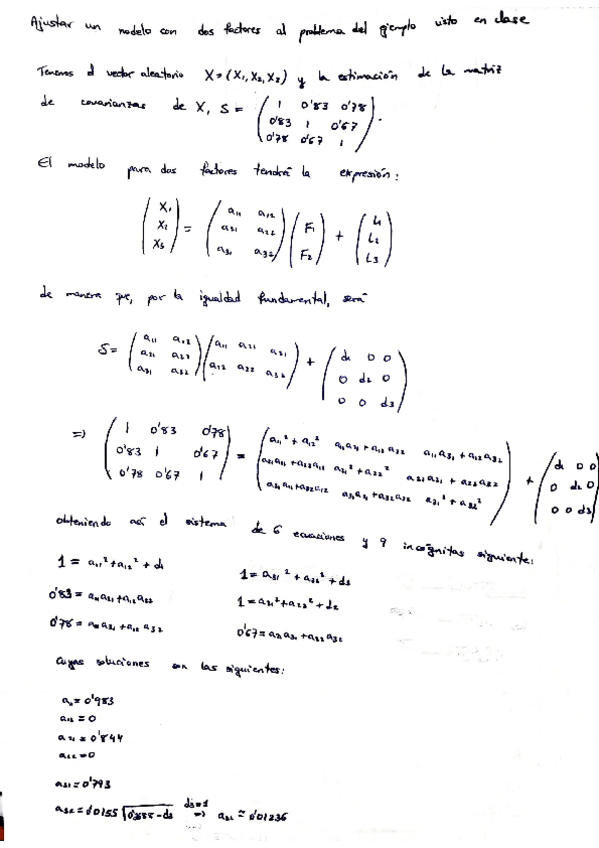 Ajustar un modelo con dos factores al problema del ejemplo visto en clase
Tenemos el vector aleatorio X=(X₁,X₂,X₃) y la estimación de la matriz
de covarianzas de X, S =
1 0'83 0'78
0'83 1 0'67
0'78 0'67 1
El modelo para dos factores tendrá la expresión:
X₁ a₁₁ a₁₂ F₁ L₁
X₂ = a₂₁ a₂₂ + L₂
X₃ a₃₁ a₃₂ F₂ L₃
de manera que, por la igualdad fundamental, será
a₁₁ a₁₂ a₁₁ a₂₁ a₃₁ d₁ 0 0
S = a₂₁ a₂₂ a₁₂ a₂₂ a₃₂ + 0 d₂ 0
a₃₁ a₃₂ 0 0 d₃
1 0'83 0'78 a₁₁²+a₁₂² a₁₁a₂₁+a₁₂a₂₂ a₁₁a₃₁+a₁₂a₃₂ d₁ 0 0
=> 0'83 1 0'67 = a₂₁a₁₁+a₂₂a₁₂ a₂₁²+a₂₂² a₂₁a₃₁+a₂₂a₃₂ + 0 d₂ 0
0'78 0'67 1 a₃₁a₁₁+a₃₂a₁₂ a₃₁a₂₁+a₃₂a₂₂ a₃₁²+a₃₂² 0 0 d₃
obteniendo así el sistema de 6 ecuaciones y 9 incógnitas siguiente:
1 = a₁₁²+a₁₂²+d₁ 1 = a₃₁²+a₃₂²+d₃
0'83 = a₁₁a₂₁+a₁₂a₂₂ 1 = a₂₁²+a₂₂²+d₂
0'78 = a₁₁a₃₁+a₁₂a₃₂ 0'67 = a₂₁a₃₁+a₂₂a₃₂
cuyas soluciones son las siguientes:
a₁₁ = 0'983
a₁₂ = 0
a₂₁ = 0'844
a₂₂ = 0
a₃₁ = 0'793
d₃=1
=> a₃₂ ≈ 0'01236